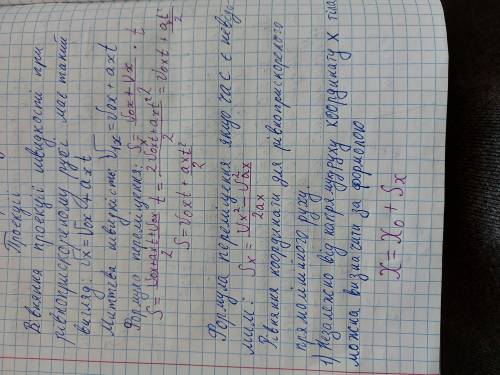 Проекції
Рівняння проекції швидкості при
рівноприскореному русі має такий
вигляд: Vx = Vox + axt
Миттєва швидкість: V1x = Vox + axt
Формула переміщення: Sx = Vox + Vx / 2 · t
S = Vox + axt + Vox / 2 t = 2Voxt + axt² / 2 = Voxt + at² / 2
S = Voxt + axt² / 2
Формула переміщення якщо час є невідо
мим: Sx = Vx² - V²ox / 2ax
Рівняння координати для рівноприскореного
прямолінійного руху.
1) Незалежно від напряму руху координату х тіла
можна визначати за формулою
X = Xo + Sx